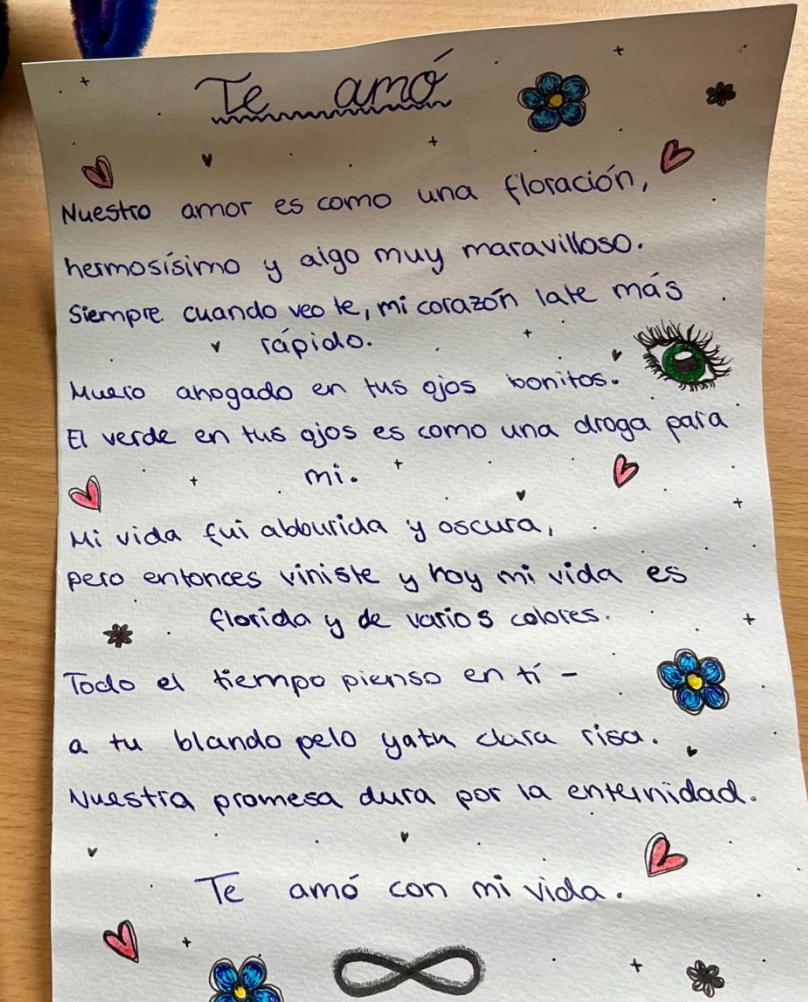 Te amó
Nuestro amor es como una floración,
hermosísimo y algo muy maravilloso.
Siempre cuando veo te, mi corazón late más
rápido.
Muero ahogado en tus ojos bonitos.
El verde en tus ojos es como una droga para
mi.
Mi vida fui abburida y oscura,
pero entonces viniste y hoy mi vida es
florida y de varios colores.
Todo el tiempo pienso en tí -
a tu blando pelo y a tu clara risa.
Nuestra promesa dura por la enternidad.
Te amó con mi vida.